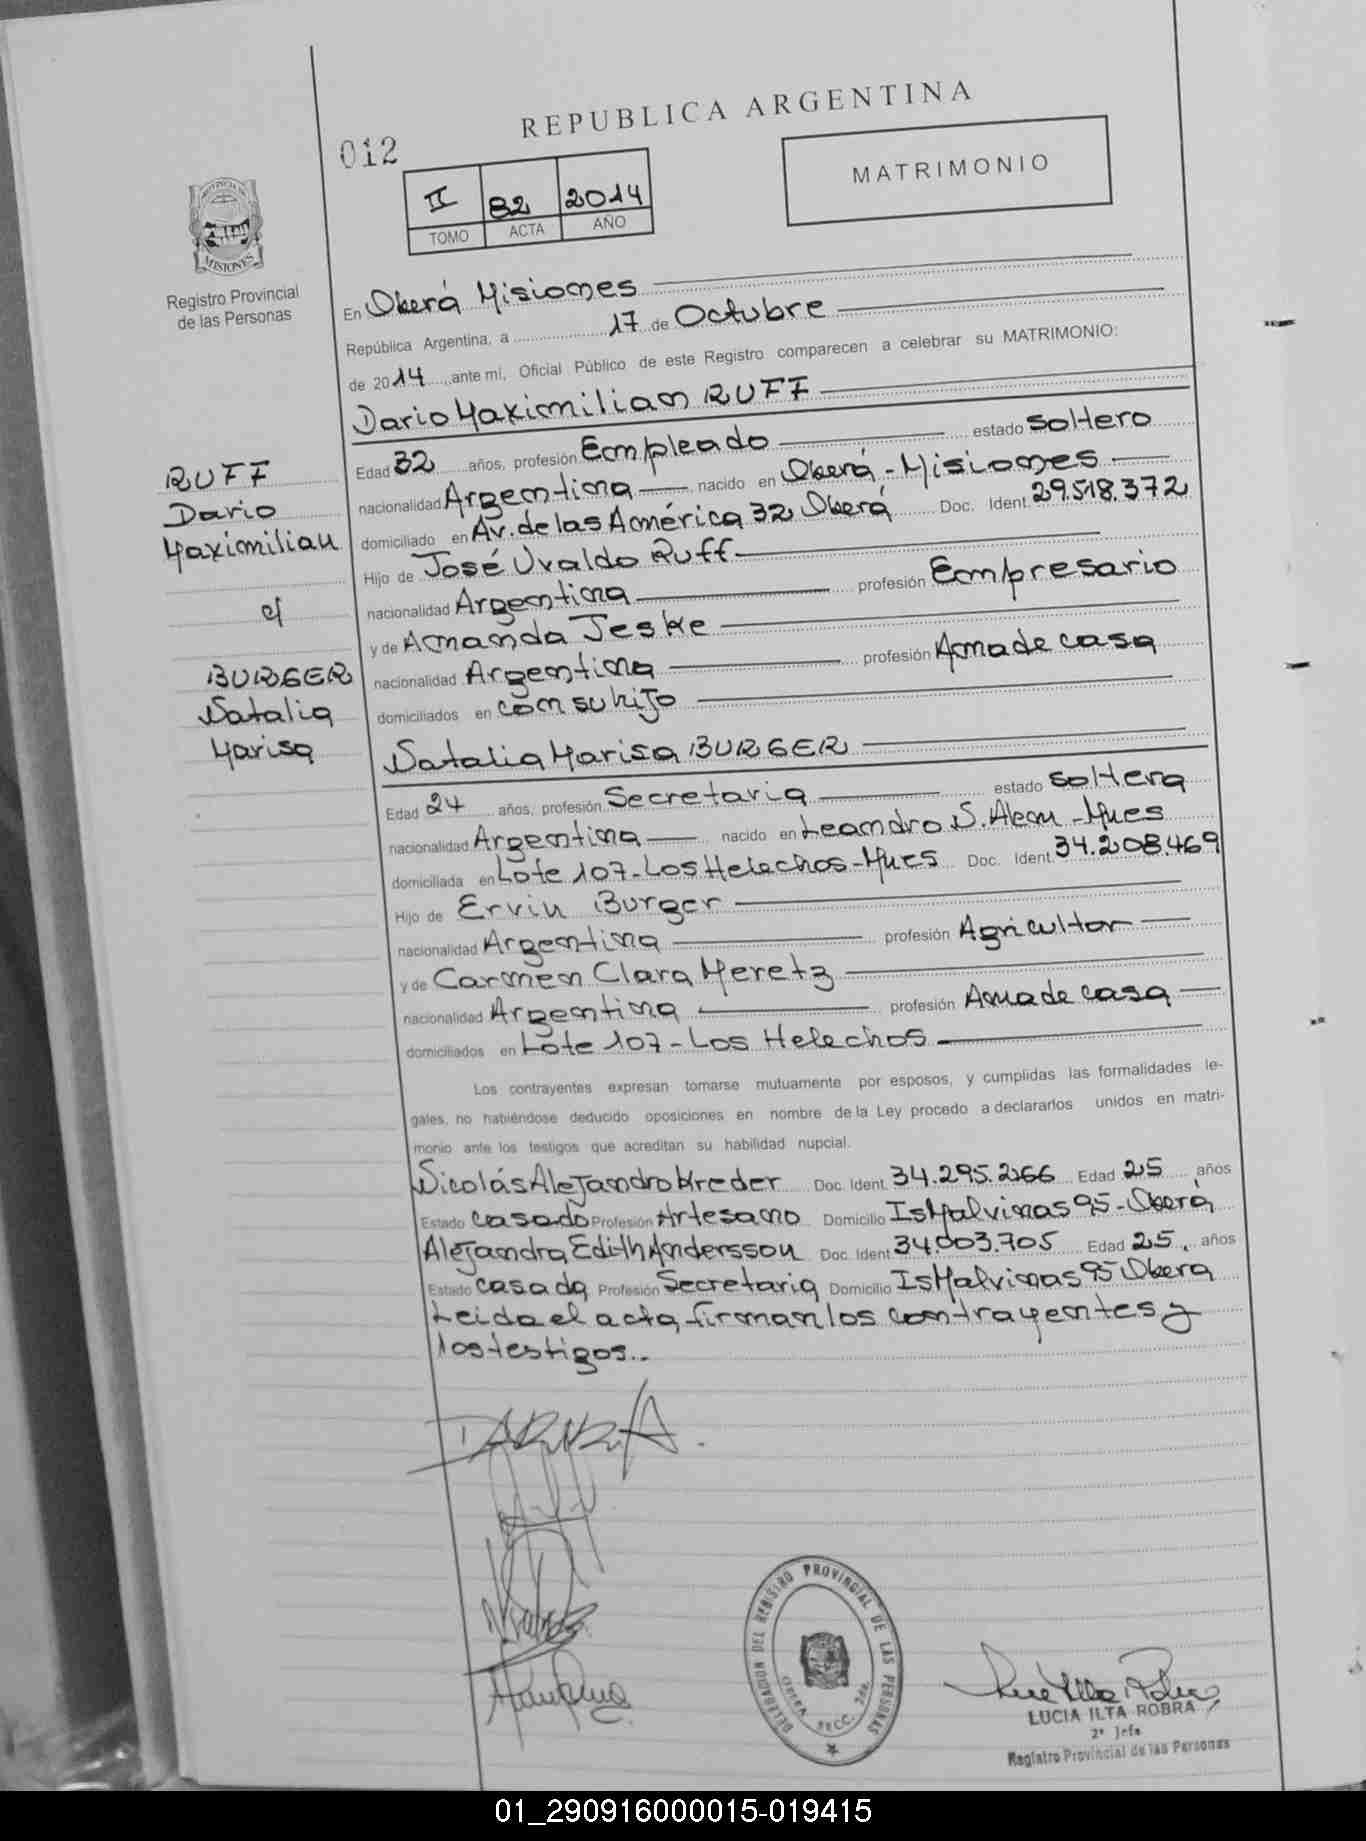 REPUBLICA ARGENTINA
012
MATRIMONIO
II 82 2014
TOMO ACTA AÑO
PROVINCIA DE
MISIONES
Registro Provincial
de las Personas
En Oberá Misiones
República Argentina, a 17 de Octubre
de 2014, ante mí, Oficial Público de este Registro comparecen a celebrar su MATRIMONIO:
Dario Maximilian RUFF
Edad 32 años, profesión Empleado estado Soltero
nacionalidad Argentina nacido en Oberá - Misiones
domiciliado en Av. de las América 32 Oberá Doc. Ident. 29.518.372
Hijo de José Uvaldo Ruff
nacionalidad Argentina profesión Empresario
y de Amanda Jeske
nacionalidad Argentina profesión Ama de casa
domiciliados en con su hijo
RUFF
Dario
Maximilian
c/
BURGER
Natalia
Marisa
Natalia Marisa BURGER
Edad 24 años, profesión Secretaria estado Soltera
nacionalidad Argentina nacido en Leandro N. Alem - Mnes
domiciliada en Lote 107 - Los Helechos - Mnes Doc. Ident. 34.208.469
Hijo de Ervin Burger
nacionalidad Argentina profesión Agricultor
y de Carmen Clara Meretz
nacionalidad Argentina profesión Ama de casa
domiciliados en Lote 107 - Los Helechos
Los contrayentes expresan tomarse mutuamente por esposos, y cumplidas las formalidades le-
gales, no habiéndose deducido oposiciones en nombre de la Ley procedo a declararlos unidos en matri-
monio ante los testigos que acreditan su habilidad nupcial.
Nicolás Alejandro Kreder Doc. Ident. 34.295.266 Edad 25 años
Estado Casado Profesión Artesano Domicilio Is Malvinas 95 - Oberá
Alejandra Edith Andersson Doc. Ident. 34.003.705 Edad 25, años
Estado Casada Profesión Secretaria Domicilio Is Malvinas 95 Obera
Leida el acta, firman los contrayentes y
los testigos..
DELEGACION DEL REGISTRO PROVINCIAL DE LAS PERSONAS
OBERA SECC. 2da.
LUCIA ILTA ROBRA
2º Jefe
Registro Provincial de las Personas
01_290916000015-019415